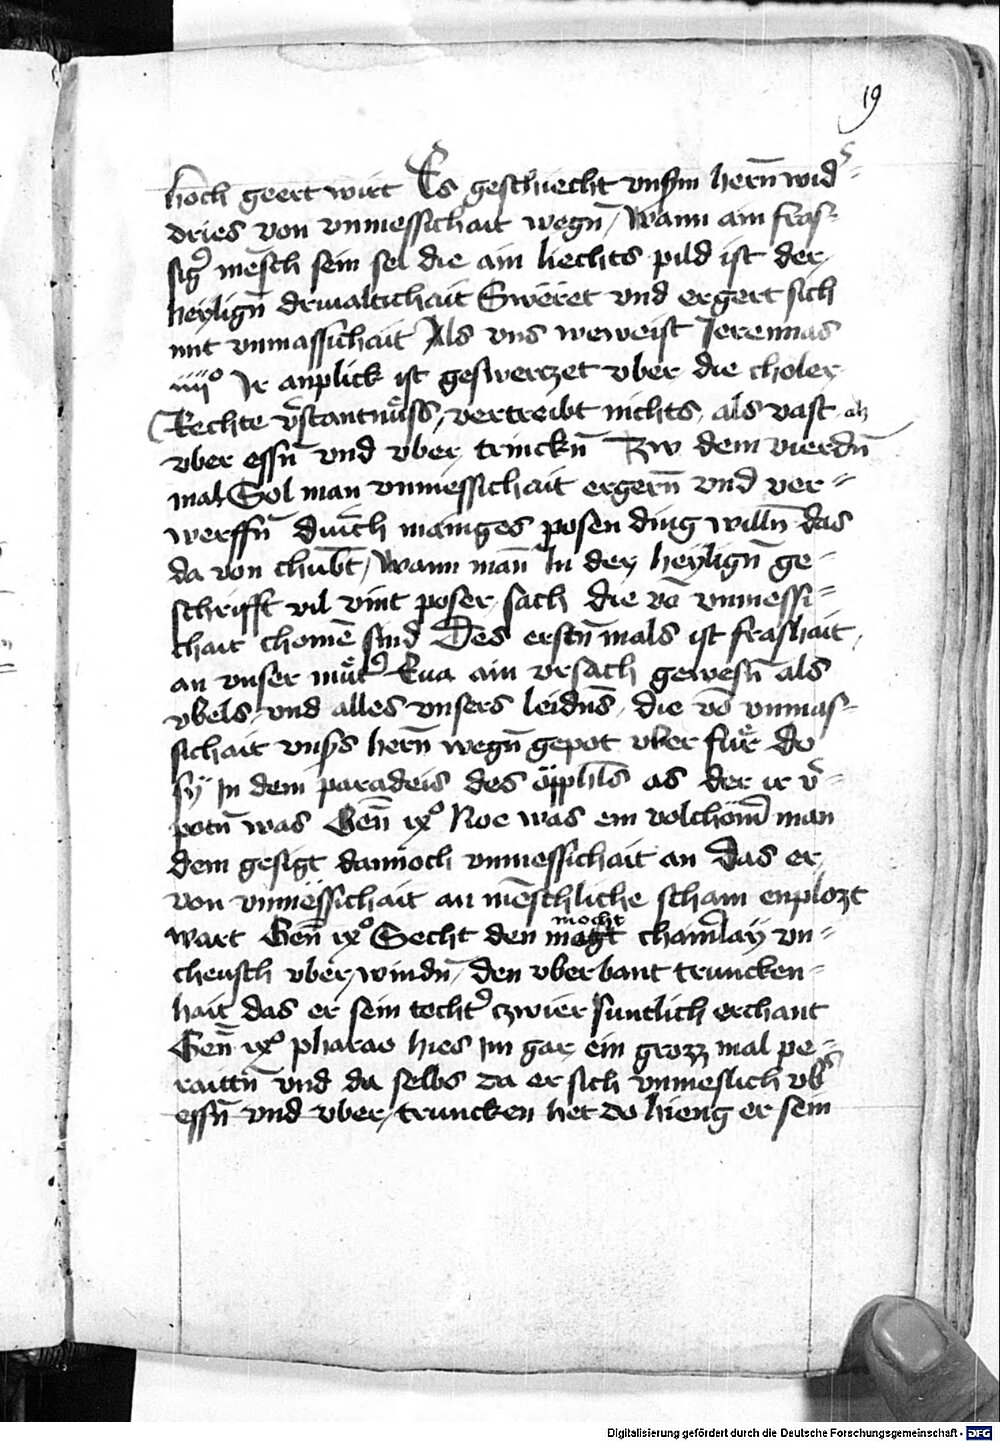 19
hoch geert wirt Es geschiecht vnsm herñ wid̕
dries von vnmessichait wegñ / Wann ain fras-
sig̕ mẽsch sein sel die ain liechts pild ist der
heyligñ driualtichait Swëret vnd ergert sich
mit vnmassichait Als vns weweist Jeremias
iiij° Ir anplick ist geswerczet vber die choler
Rechte v̕stantnu̇ss vertreibt nichts als vast als
vber essñ vnd vber trinckñ Zw dem vierdñ
mal Sol man vnmessichait ergerñ vnd ver=
werffñ durch maniges posen ding willñ das
da von chūbt / Wann mañ In der heyligñ ge-
schrifft vil vint poser sach die võ vnmessi=
chait chomẽ sind Des erstñ mals ist frashait
an vnser mu̇t̕ Eua ain vrsach gewesñ als
vbels vnd alles vnsers leidñs die võ vnmas=
sichait vnsers herñ wegñ gepot vber fu̇r do
sÿ In dem paradeis des öpphls as der ir v̕=
potñ was Geñ ix° Noe was ein volchöm̃ man
dem gesigt dannoch vnmessichait an das er
von vnmëssichait an mẽschliche scham enplozt
wart Geñ ix° Secht den mocht magt chainerlaÿ vn=
cheusch vber windñ den vberbant truncken=
hait das er sein tocht̕ czwier suntlich erchant
Geñ ix° pharao hies im gar ein grozz mal pe=
raittñ vnd da selbs da er sich vnmeslich vb̕
essñ vnd vber truncken het do hieng er sein
Digitalisierung gefördert durch die Deutsche Forschungsgemeinschaft - DFG